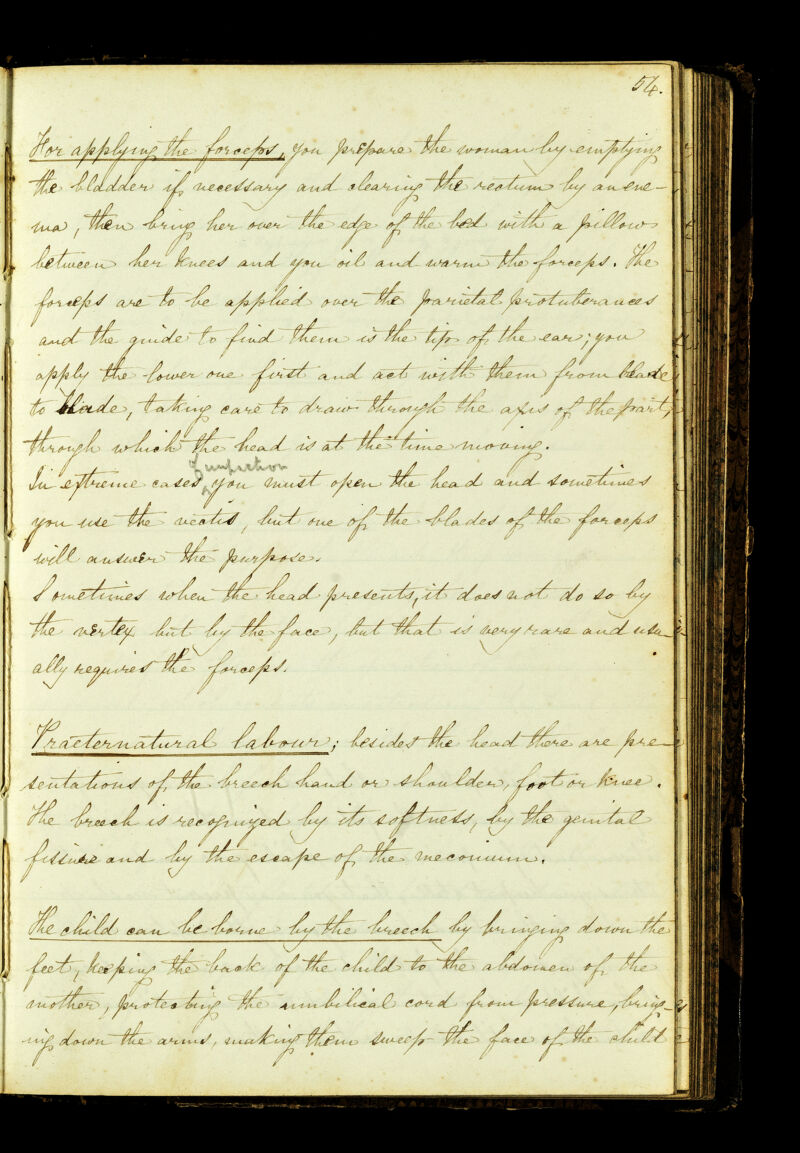 54.
For applying the forceps, you prepare the woman by emptying
the bladder if necessary and clearing the rectum by an ene-
ma, then bring her over the edge of the bed with a pillow
between her knees and you oil and warm the forceps. The
forceps are to be applied over the parietal protuberances
and the guide to find them is the tip of the ear; you
apply the lower one first and act with them from blade
to blade, taking care to draw through the axis of the part,
through which the head is at the time moving.
In extreme cases you must open the head and sometimes
you use the vectis, but one of the blades of the forceps
will answer the purpose.
Sometimes when the head presents, it does not do so by
the vertex but by the face, but that is very rare and usu-
ally requires the forceps.
Praeternatural labour; besides the head there are pre-
sentations of the breech hand or shoulder, foot or knee.
The breech is recognized by its softness, by the genital
fissure and by the escape of the meconium.
The child can be borne by the breech by bringing down the
feet, keeping the back of the child to the abdomen of the
mother, protecting the umbilical cord from pressure, bring-
ing down the arms, making them sweep the face of the child